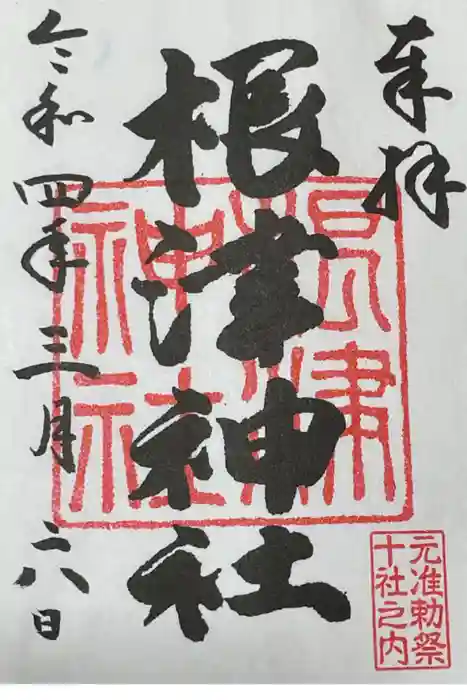 奉拝
根津神社
根津神社
元准勅祭
十社之内
令和四年三月二八日